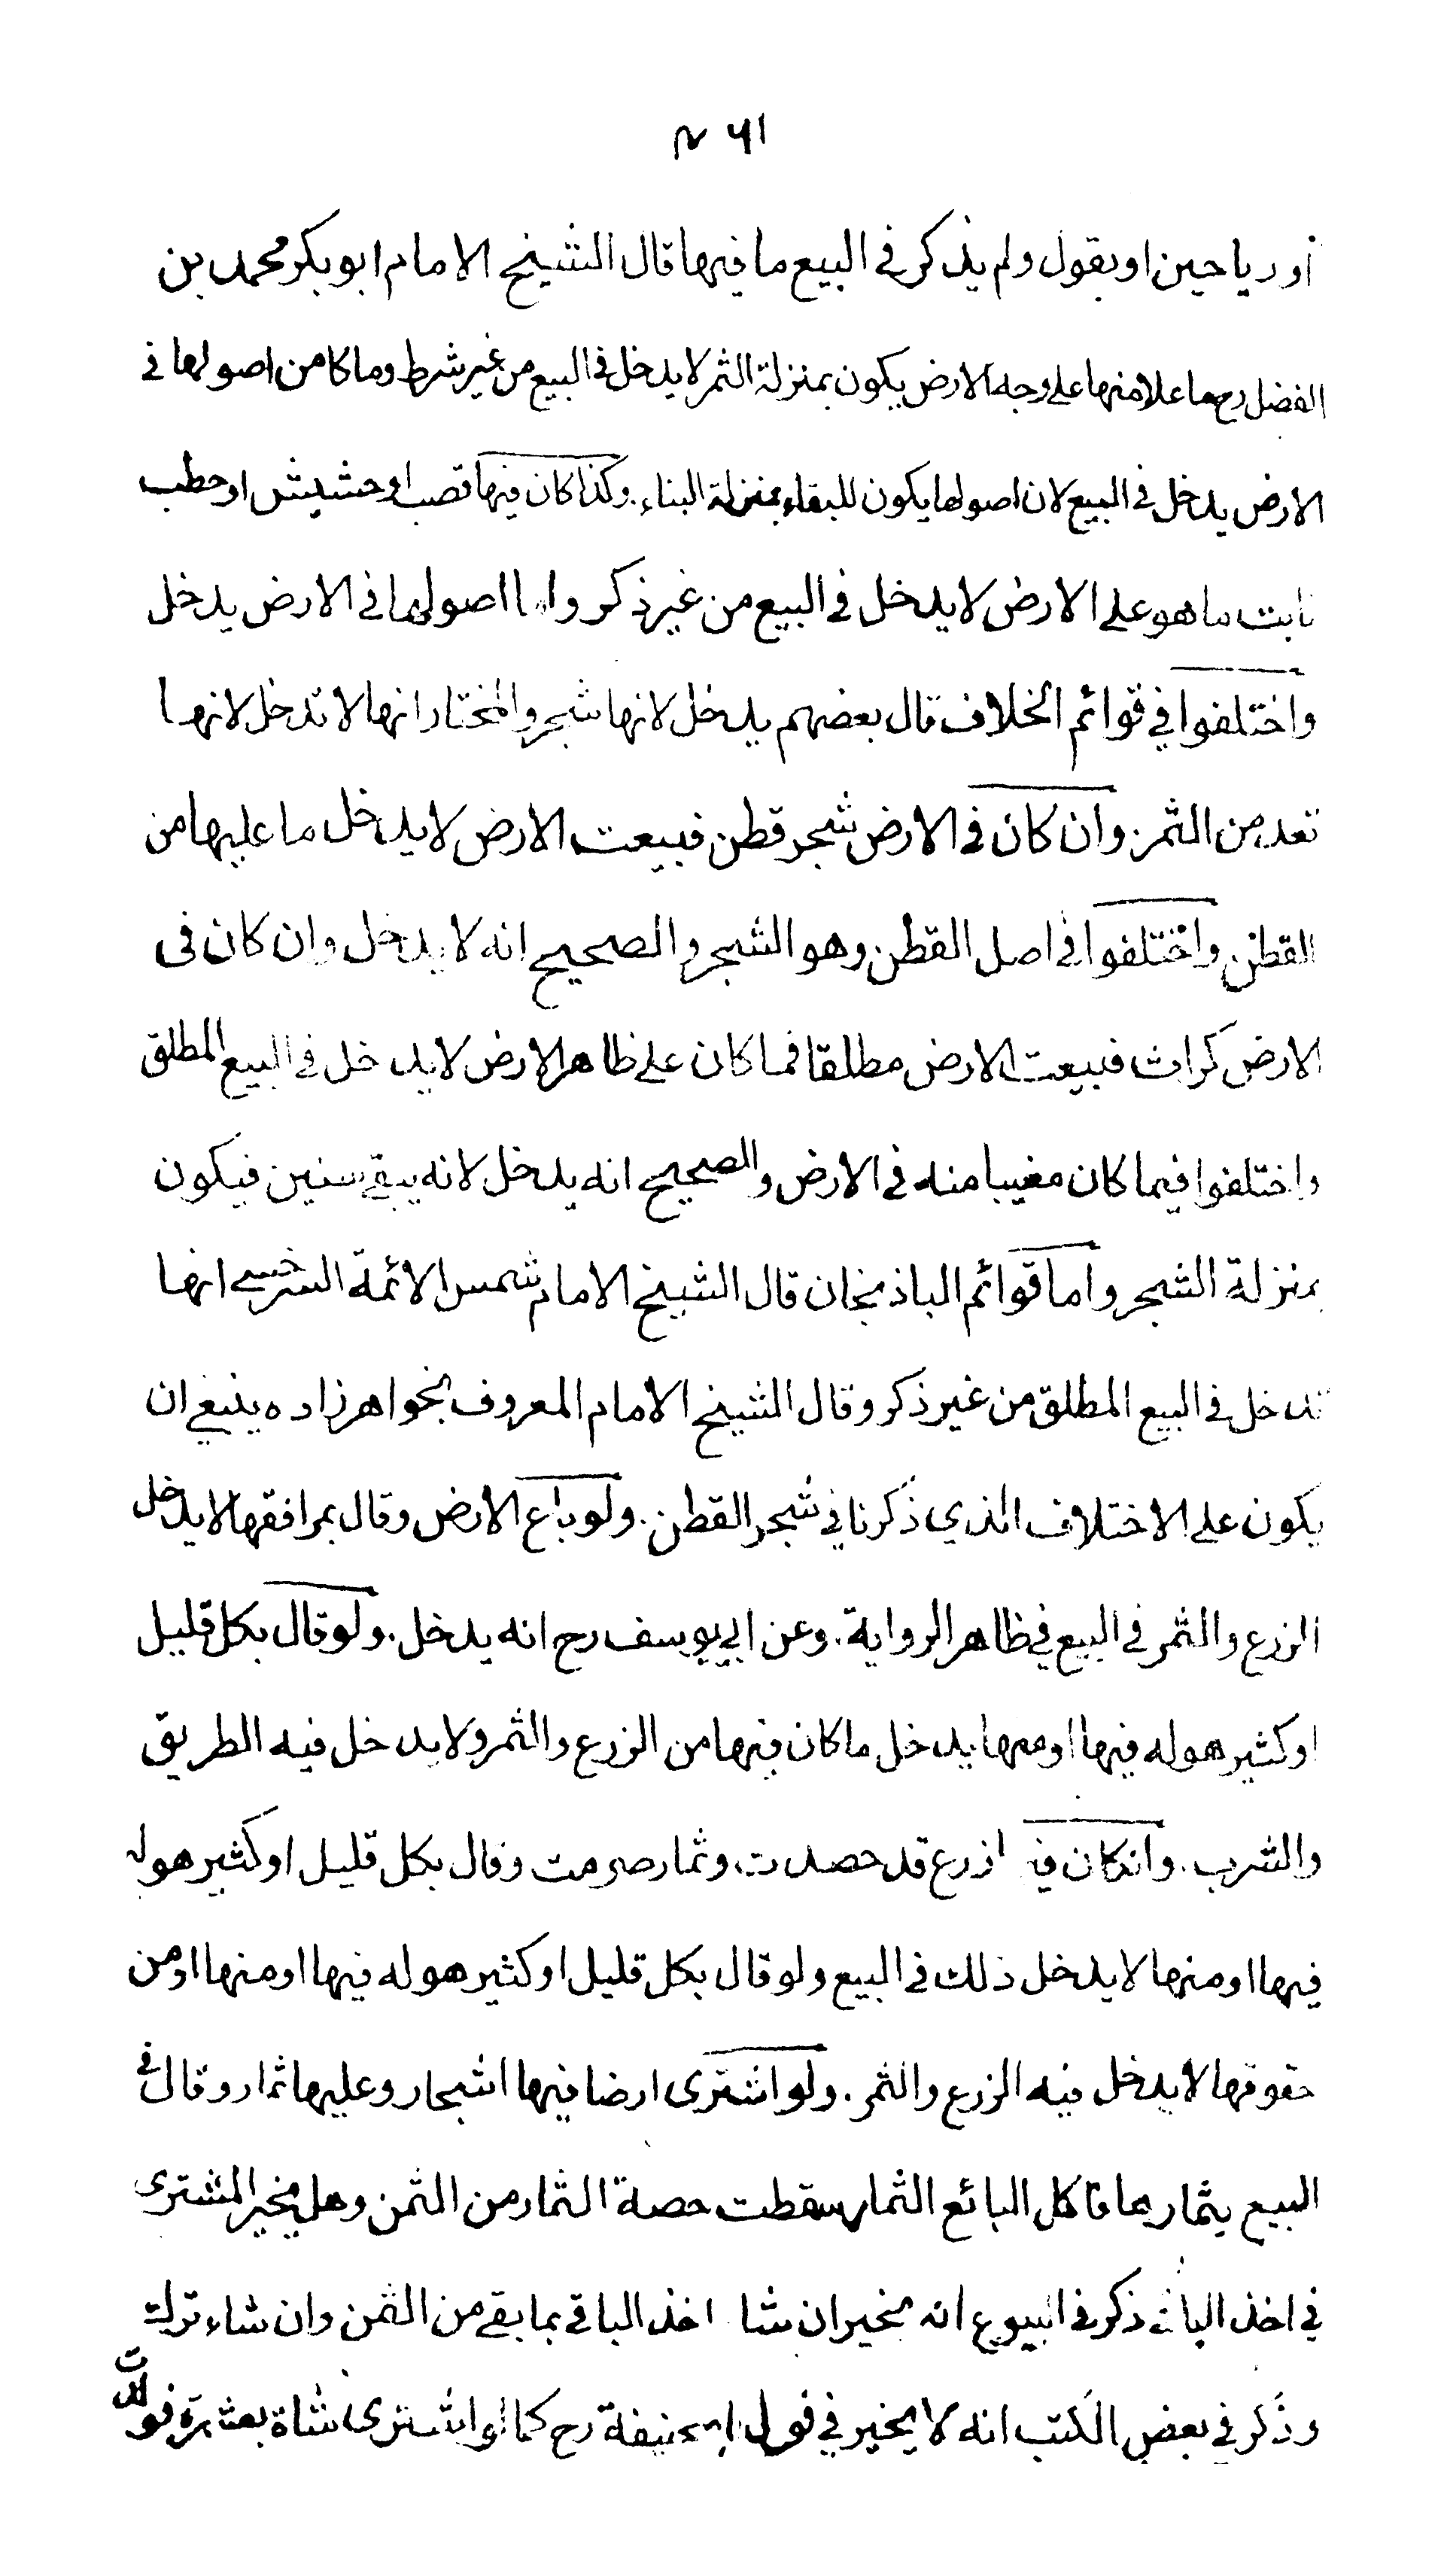 ٤٦١
أو رياحين او بقول ولم يذكر في البيع ما فيها قال الشيخ الامام ابو بكر محمد بن
الفضل رح ما علا منها على وجه الارض يكون بمنزلة الثمر لا يدخل في البيع من غير شرط وما كا من اصولها في
الارض يدخل في البيع لان اصولها يكون للبقاء بمنزلة البناء. وكذا كان فيها قصب او حشيش او حطب
نابت ما هو على الارض لا يدخل في البيع من غير ذكر واما اصولها في الارض يدخل
واختلفوا في قوائم الخلاف قال بعضهم يدخل لانها شجر والمختار انها لا تدخل لانها
تعد من الثمر. وان كان في الارض شجر قطن فبيعت الارض لا يدخل ما عليها من
القطن واختلفوا في اصل القطن وهو الشجر والصحيح انه لا يدخل وان كان فى
الارض كراث فبيعت الارض مطلقا فما كان على ظاهر الارض لا يدخل في البيع المطلق
واختلفوا فيما كان مغيبا منه في الارض والصحيح انه يدخل لانه يبقى سنين فيكون
بمنزلة الشجر واما قوائم الباذنجان قال الشيخ الامام شمس الائمة السرخسى انها
تدخل في البيع المطلق من غير ذكر وقال الشيخ الامام المعروف بخواهرزاده ينبغي ان
يكون على الاختلاف الذي ذكرنا في شجر القطن. ولو باع الارض وقال بمرافقها لا يدخل
الزرع والثمر في البيع في ظاهر الرواية. وعن ابي يوسف رح انه يدخل. ولو قال بكل قليل
او كثير هو له فيها او منها يدخل ما كان فيها من الزرع والثمر ولا يدخل فيه الطريق
والشرب. وان كان فيـ ا زرع قد حصدت وثمار صرمت وقال بكل قليل او كثير هو له
فيها او منها لا يدخل ذلك في البيع ولو قال بكل قليل او كثير هو له فيها او منها او من
حقوقها لا يدخل فيه الزرع والثمر. ولو اشترى ارضا فيها اشجار وعليها ثمار وقال في
البيع بثمارها فاكل البائع الثمار سقطت حصة الثمار من الثمن وهل يخير المشترى
في اخذ الباقي ذكر في البيوع انه يخير ان شا اخذ الباقي بما بقي من الثمن وان شاء ترك
وذكر في بعض الكتب انه لا يخير في قول ابي حنيفة رح كما لو اشترى شاة بعشرة فولدت